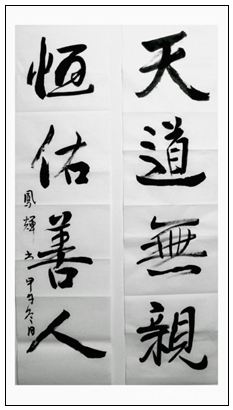 天道無親
恒佑善人
鳳輝書甲午冬日